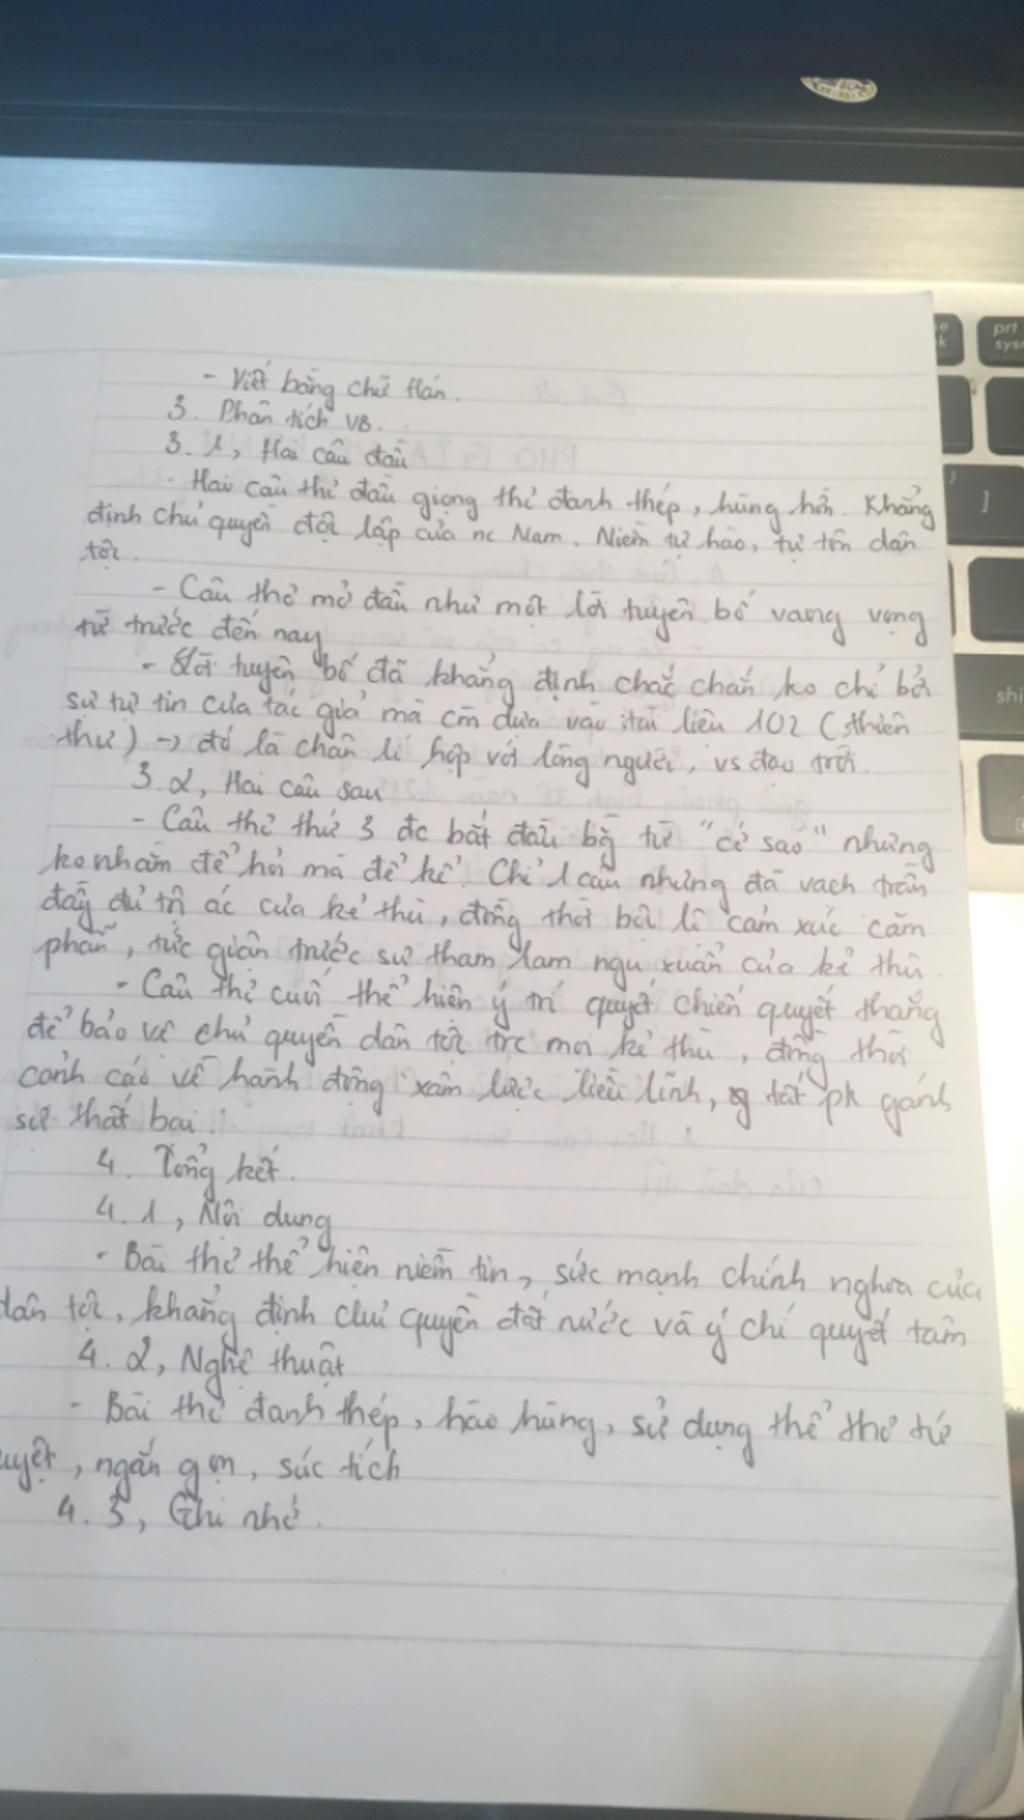 - Viết bằng chữ Hán.
3. Phân tích VB.
3. 1, Hai câu đầu
- Hai câu thơ đầu giọng thơ đanh thép, hùng hồn. Khẳng
định chủ quyền độc lập của nc Nam. Niềm tự hào, tự tôn dân
tộc.
- Câu thơ mở đầu như một lời tuyên bố vang vọng
từ trước đến nay
- Lời tuyên bố đã khẳng định chắc chắn ko chỉ bởi
sự tự tin của tác giả mà còn dựa vào tài liệu 102 (thiên
thư) -> đó là chân lí hợp với lòng người, vs đạo trời.
3. 2, Hai câu sau
- Câu thơ thứ 3 đc bắt đầu bg từ "cớ sao" nhưng
ko nhằm để hỏi mà để kể. Chỉ 1 câu nhưng đã vạch trần
đầy đủ tội ác của kẻ thù, đồng thời bộc lộ cảm xúc căm
phẫn, tức giận trước sự tham lam ngu xuẩn của kẻ thù
- Câu thơ cuối thể hiện ý trí quyết chiến quyết thắng
để bảo vệ chủ quyền dân tộc trc mọi kẻ thù, đồng thời
cảnh cáo về hành động xâm lược liều lĩnh, tất pk gánh
sự thất bại!
4. Tổng kết.
4. 1, Nội dung
- Bài thơ thể hiện niềm tin, sức mạnh chính nghĩa của
dân tộc, khẳng định chủ quyền đất nước và ý chí quyết tâm
4. 2, Nghệ thuật
- Bài thơ đanh thép, hào hùng, sử dụng thể thơ tứ
uyệt, ngắn gọn, súc tích
4. 3, Ghi nhớ.
prt
sys
shi
]